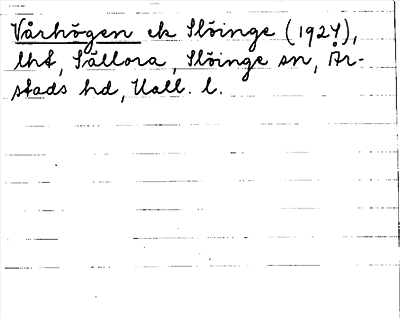 Vårhögen ek Slöinge (1924),
lht, Sällora, Slöinge sn, År-
stads hd, Hall. l.